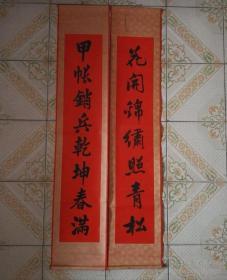 花開錦繡照青松
甲帐銷兵乾坤春滿